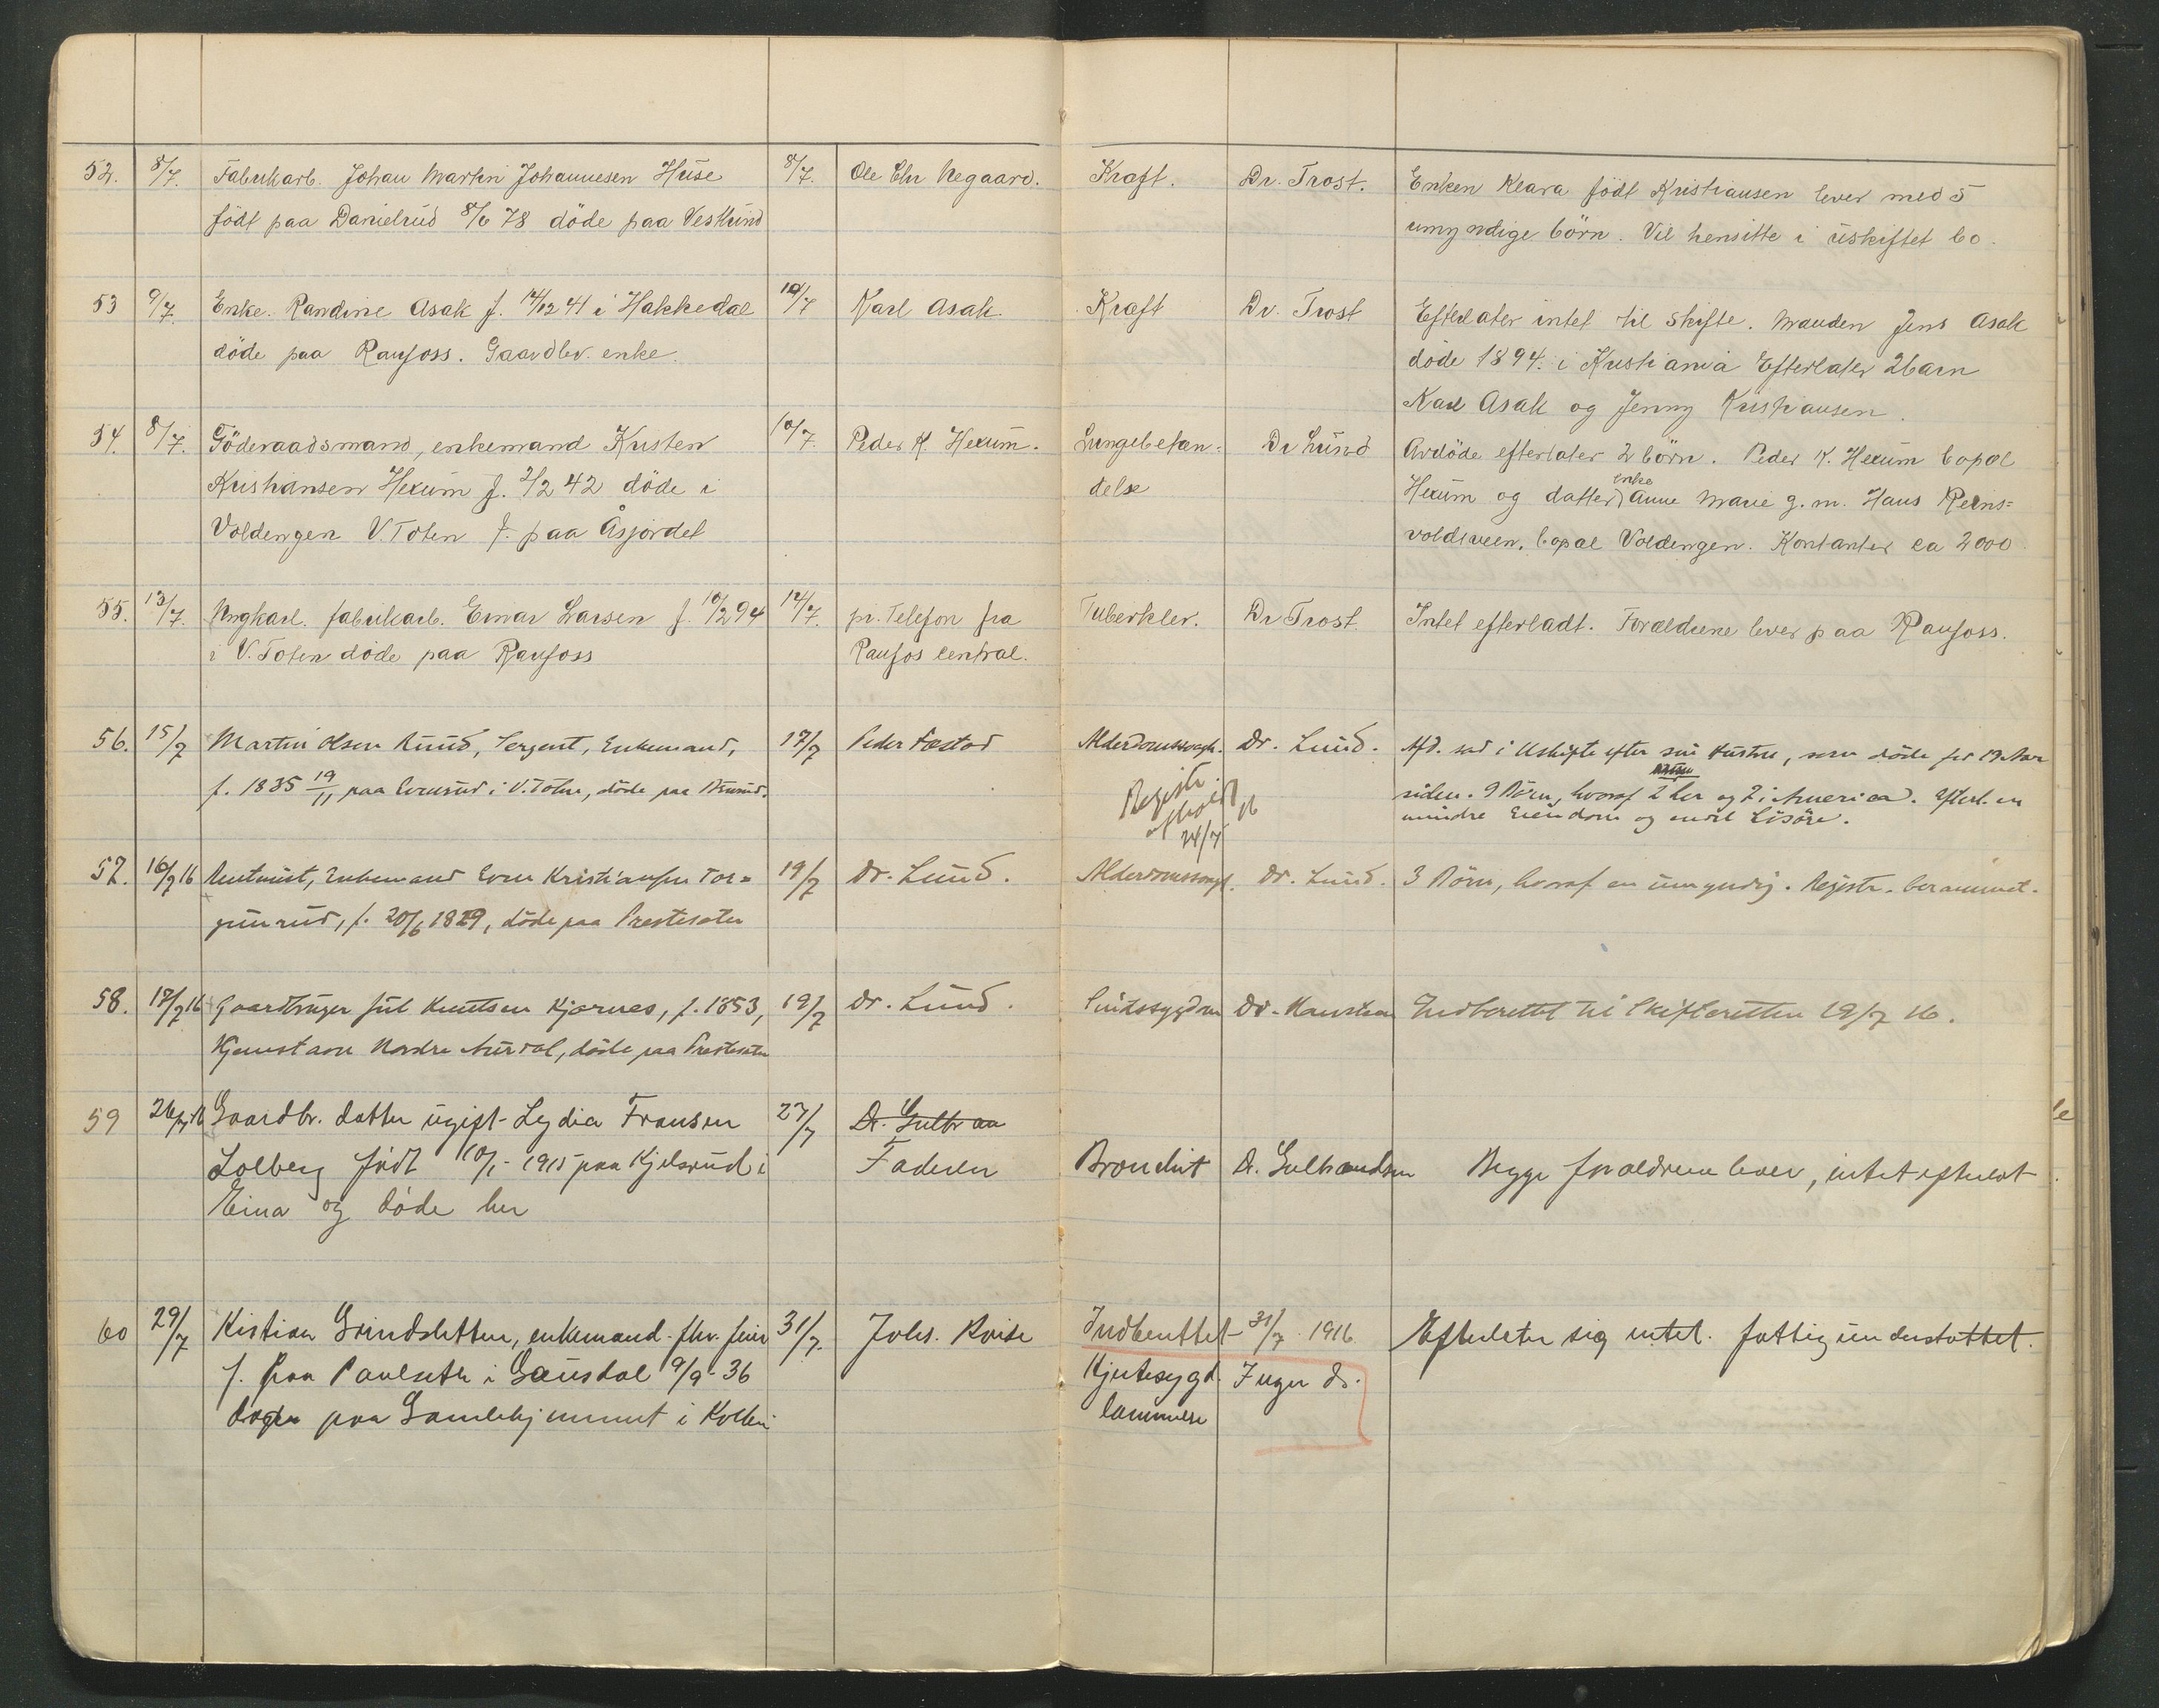 52. 8/7. Fabrikarb. Johan Martin Johannesen Huse 8/7. Ole Chr Negaard. Kraft. Dr. Trost. Enken Klara født Kristiansen lever med 5
födt paa Danielrud 8/6 78 döde paa Veslund umyndige börn. Vil hensitte i uskiftet bo.
53 9/7. Enke. Randine Asak f. 14/12 41 i Hakkedal 10/7 Karl Asak. Kræft Dr. Trost Efterlater intet til skifte. Manden Jens Asak
döde paa Raufoss. Gaardbr. enke. döde 1894. i Kristiania Efterlater 2 barn
Karl Asak og Jenny Kristiansen.
54. 8/7. Föderaadsmand, enkemand Kristen 10/7. Peder K. Hexum. Lungebetæn- Dr Lund Avdöde efterlater 2 börn. Peder K. Hexum bopæl
Kristiansen Hexum f. 2/2 42 döde i delse Hexum og datter enke Anne Marie g. m. Hans Reins=
Voldengen V. Toten f. paa Åsjordet voldsveen. bopæl Voldengen. Kontanter ca 2000
55. 13/7. Ungkarl. fabrikarb. Einar Larsen f. 10/2 94 14/7. pr. Telefon fra Tuberkler. Dr Trost. Intet efterladt. Forældrene lever paa Raufoss.
i V. Toten döde paa Raufoss Raufos central.
56. 15/7 Martin Olsen Ruud, Sergent, Enkemand, 17/7 Peder Fæstad Alderdomssvagh. Dr. Lund. Afd. sad i Uskifte efter sin Hustru, som døde for 19 Aar
f. 1835 19/11 paa Evensrud i V. Toten, døde paa siden. 9 Børn, hvoraf 2 her og 2 i America. Efterl. en
Registr. afholdt 24/7 16 mindre Eiendom og endel Lösöre.
57. 16/7 16 Rentenist, Enkemand Even Kristiansen Tor= 19/7 Dr. Lund. Alderdomssvagh. Dr. Lund. 3 Børn, hvoraf en umyndig. Registr. berammet.
gunrud, f. 20/6 1829, døde paa Prestesæter
58. 17/7 16 Gaardbruger Jul Knutsen Kjørnes, f. 1853, 19/7 Dr. Lund. Sindssygdom Dr. Indberettet til Skifteretten 19/7 16.
Nordre Aurdal, døde paa Prestesæter
59 26/7 16 Gaardbr. datter ugift Lydia Fransen 27/7 Dr. Gulbran
Solberg født 10/1 1915 paa Kjelsrud i Faderen Bronchit D. Gulbrandsen Begge forældrene lever, intet efterlat
Eina og døde her
60 29/7 Kistian Grindsletten, enkemand 31/7. Johs. Kvise Indberettet 31/7. 1916 Efterlater sig intet. fattigunderstøttet.
f. paa Paulseth i Gausdal 9/9 36 Hjertesygd. Ingen dr.
paa Gamlehjemmet i Kolbu lammelse